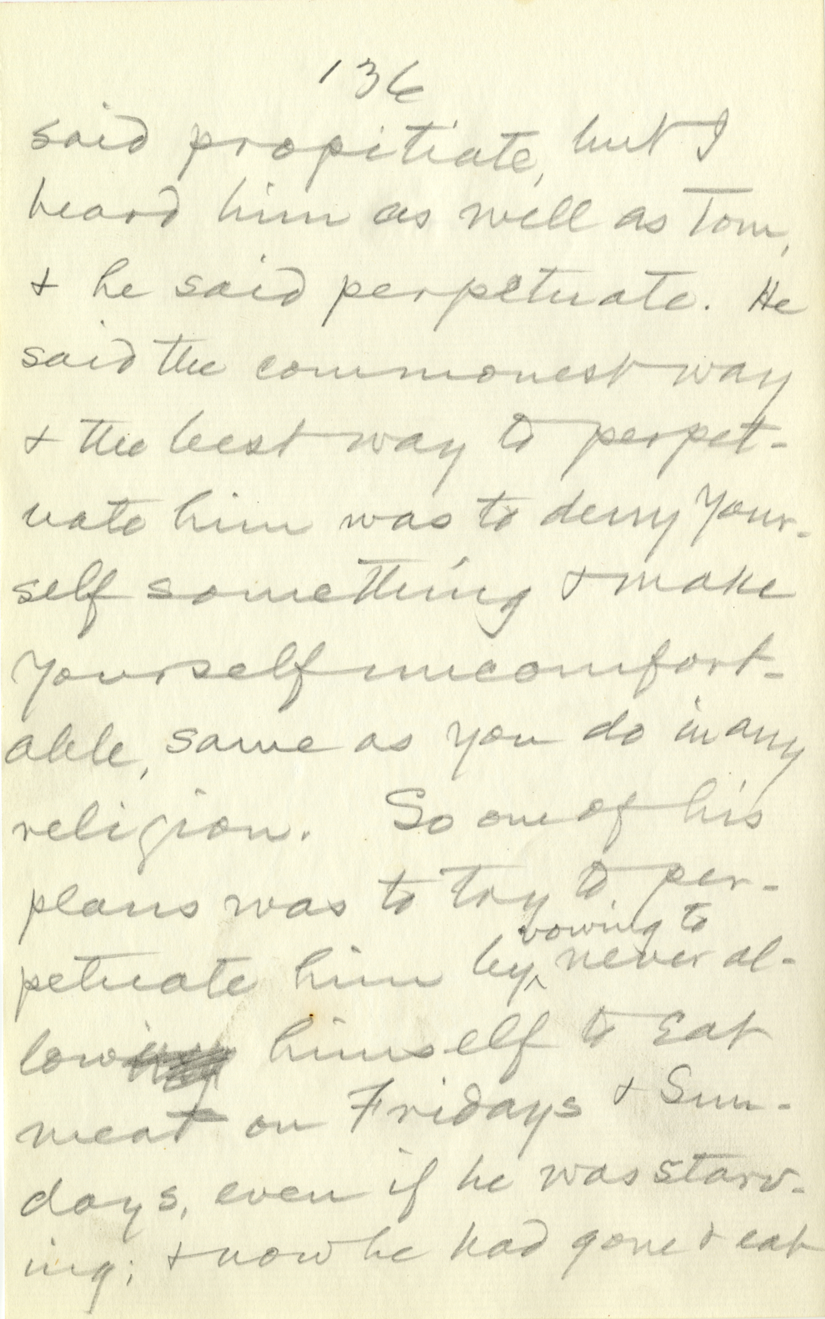 136
said propitiate, but I
heard him as well as Tom,
& he said perpetuate. He
said the commonest way
& the best way to perpet-
uate him was to deny your-
self something & make
yourself uncomfort-
able, same as you do in any
religion. So one of his
plans was to try to per-
vowing to
petuate him by ^ never al-
low himself to eat
meat on Fridays & Sun-
days, even if he was starv-
ing; & now he had gone & eat